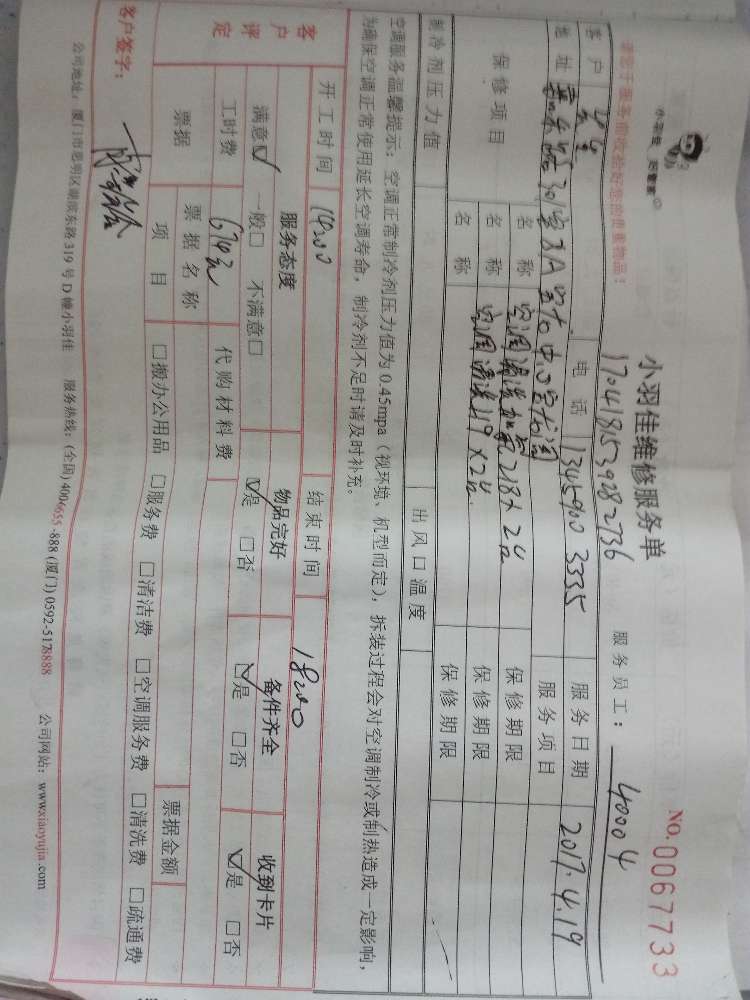 小羽佳 把家家
小羽佳维修服务单
NO.0067733
请您于服务前收拾好您的贵重物品!
1704181539282736
服务员工: 40004
客户
电话 13459003335
服务日期 2017.4.19
地址
服务项目
保修项目
名称 空调清洗加氟218×2台
保修期限
名称 空调清洗119×2台
保修期限
名称
保修期限
制冷剂压力值
出风口温度
空调服务温馨提示:空调正常制冷剂压力值为0.45mpa(视环境、机型而定),拆装过程会对空调制冷或制热造成一定影响,
为确保空调正常使用延长空调寿命,制冷剂不足时请及时补充。
开工时间 14:00
结束时间 18:00
客户评定
服务态度 物品完好 备件齐全 收到卡片
满意☑ 一般□ 不满意□ ☑是 □否 ☑是 □否 ☑是 □否
工时费 674元
代购材料费
票据
票据名称
票据金额
项目 □搬办公用品 □服务费 □清洁费 □空调服务费 □清洗费 □疏通费
客户签字:
公司地址:厦门市思明区湖滨东路319号D幢小羽佳 服务热线:(全国)4006655-888(厦门)0592-5178888 公司网站:www.xiaoyujia.com